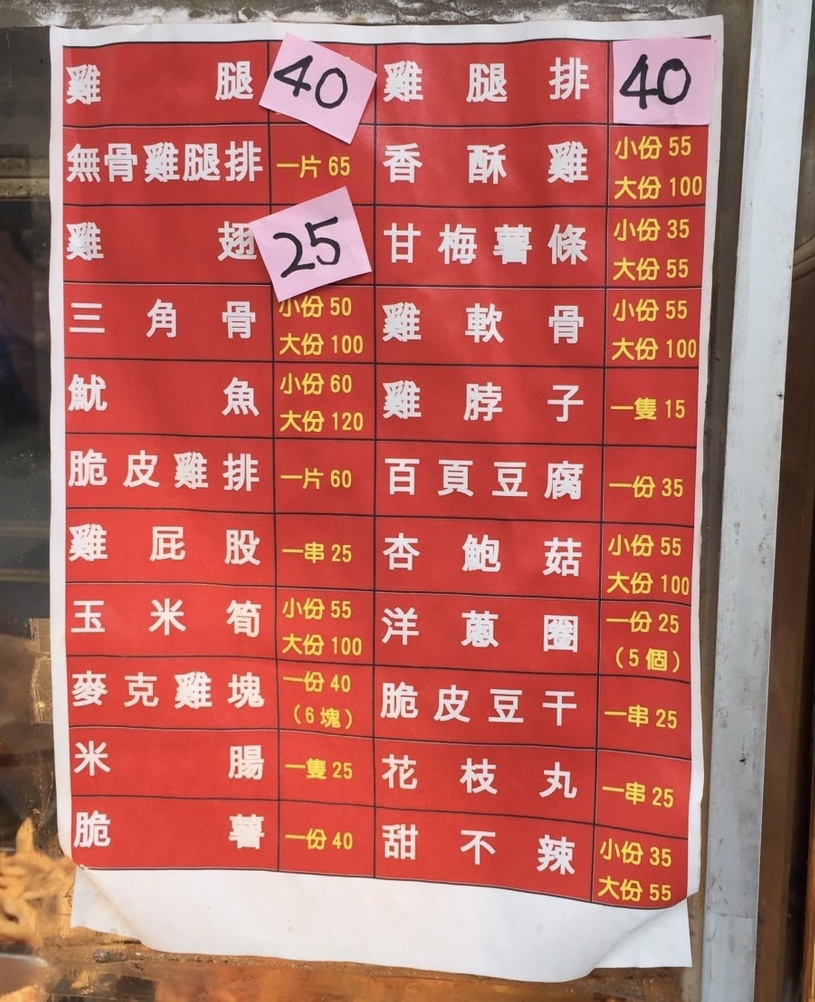 雞腿 40 雞腿排 40
無骨雞腿排 一片 65 香酥雞 小份 55
大份 100
雞翅 25 甘梅薯條 小份 35
大份 55
三角骨 小份 50 雞軟骨 小份 55
大份 100 大份 100
魷魚 小份 60 雞脖子 一隻 15
大份 120
脆皮雞排 一片 60 百頁豆腐 一份 35
雞屁股 一串 25 杏鮑菇 小份 55
大份 100
玉米筍 小份 55 洋蔥圈 一份 25
大份 100 (5個)
麥克雞塊 一份 40 脆皮豆干 一串 25
(6塊)
米腸 一隻 25 花枝丸 一串 25
脆薯 一份 40 甜不辣 小份 35
大份 55